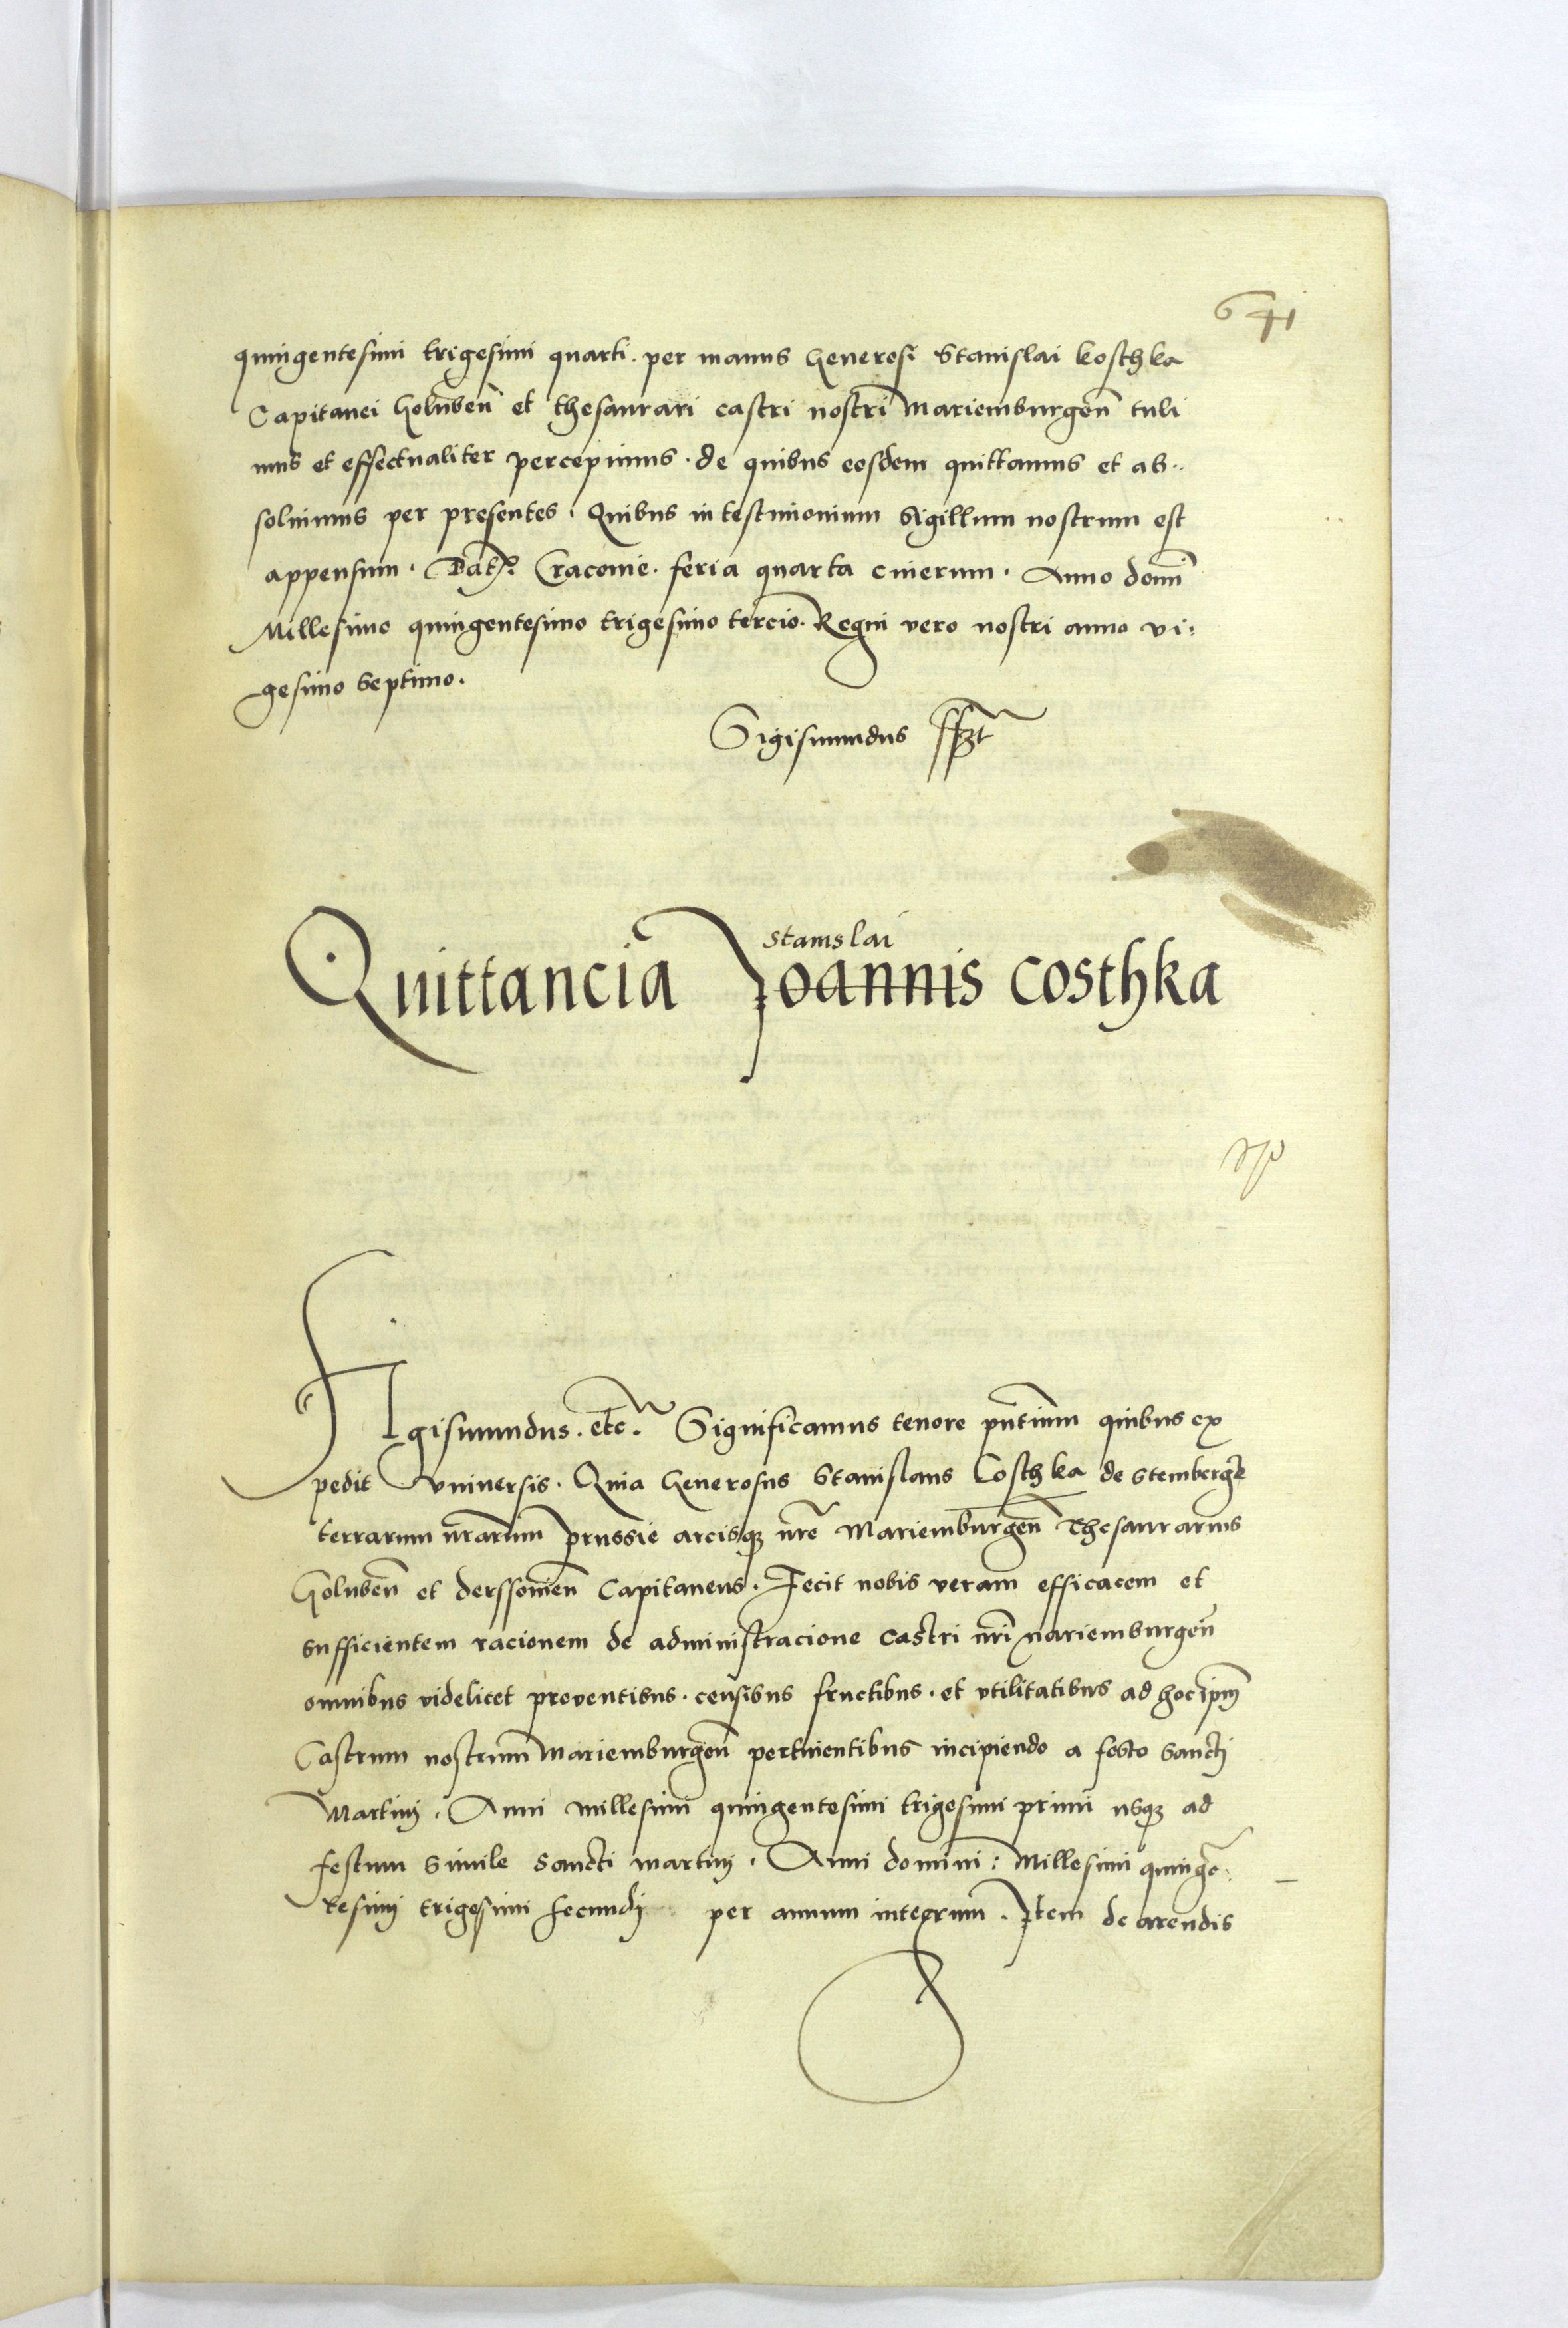 641
quingentesimi trigesimi quarti. per manus Generosi Stanislai koschka
Capitanei Golubeñ et thesaurari castri nostri Mariemburgeñ tuli
mus et effectualiter percepimus. de quibus eosdem quittamus et ab..
solvimus per presentes. Quibus in testimonium Sigillum nostrum est
appensum. Dat. Cracovie. feria quarta cinerum. Anno domi
Millesimo quingentesimo trigesimo tercio. Regni vero nostri anno vi:
gesimo Septimo.
Sigismundus
stanislai
Quittancia Joannis costhka
Sigismundus. etc. Significamus tenore pñtium quibus ex
pedit Universis. Quia Generosus Stanislaus Coschka de Stemberg
terrarum ñrarum prussie arcisq ñre Mariemburgeñ Thesaurarius
Golubeñ et derssovieñ Capitaneus. Fecit nobis veram efficacem et
sufficientem racionem de administracione castri ñri mariemburgeñ
omnibus videlicet proventibus. censibus fructibus. et utilitatibus ad hoc ipm
Castrum nostrum Mariemburgeñ pertinentibus incipiendo a festo Sancti
Martini. Anni millesimi quingentesimi trigesimi primi usq ad
festum Simile Sancti martini. Anni domini: Millesimi quinge:
tesimi trigesimi secundi per annum integrum. Item de arendis